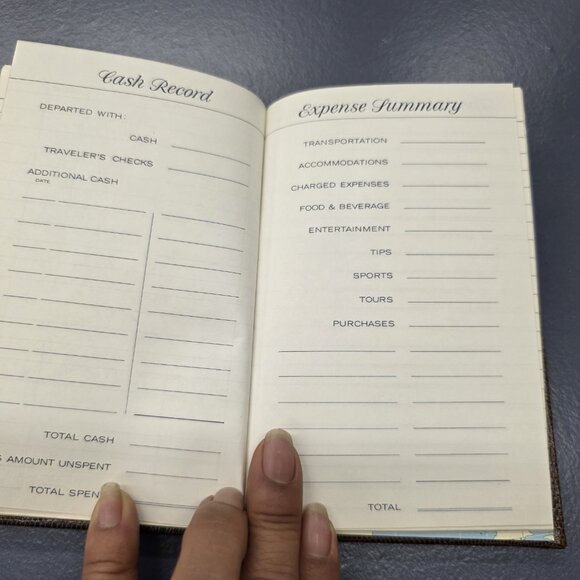 Cash Record
DEPARTED WITH:
CASH
TRAVELER'S CHECKS
ADDITIONAL CASH
DATE
TOTAL CASH
AMOUNT UNSPENT
TOTAL SPEN
Expense Summary
TRANSPORTATION
ACCOMMODATIONS
CHARGED EXPENSES
FOOD & BEVERAGE
ENTERTAINMENT
TIPS
SPORTS
TOURS
PURCHASES
TOTAL